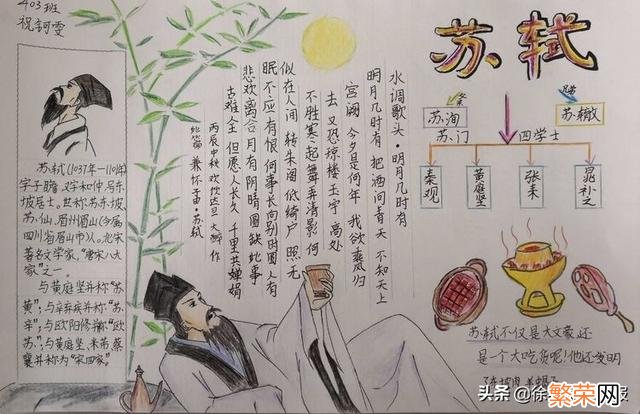 403班
苏轼(1037年—1101年)
字子瞻,又字和仲,号东
坡居士。世称苏东坡、
苏仙,眉州眉山(今属
四川省眉山市)人。北宋
著名文学家,“唐宋八大
家”之一。
与黄庭坚并称“苏
黄”;与辛弃疾并称“苏
辛”;与欧阳修并称“欧
苏”;与黄庭坚、米芾、蔡
襄并称为“宋四家”。
水调歌头·明月几时有
明月几时有 把酒问青天 不知天上
宫阙 今夕是何年 我欲乘风归
去 又恐琼楼玉宇 高处
不胜寒 起舞弄清影 何
似在人间 转朱阁 低绮户 照无
眠 不应有恨 何事长向别时圆 人有
悲欢离合 月有阴晴圆缺 此事
古难全 但愿人长久 千里共婵娟
丙辰中秋 欢饮达旦 大醉 作
此篇 兼怀子由·苏轼
苏轼
苏洵
苏辙
苏门 四学士
秦观
黄庭坚
张耒
晁补之
苏轼不仅是大文豪,还
是一个大吃货呢!他还发明
头条
繁荣网